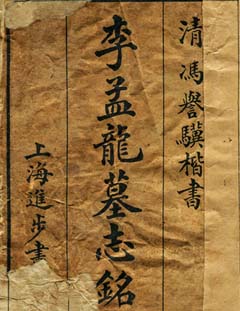 清馮譽驥楷書
李孟龍墓志銘
上海進步書